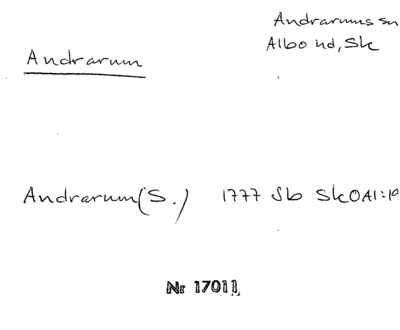 Andrarums sn
Albo hd, Sk
Andrarum
Andrarum (S.) 1777 Jb SkOA1:
Nr 17011